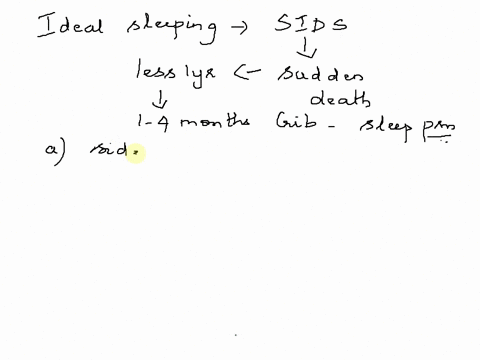 Ideal sleeping → SIDS
less 1yr ← sudden
death
1-4 months Crib - sleep
a) sid